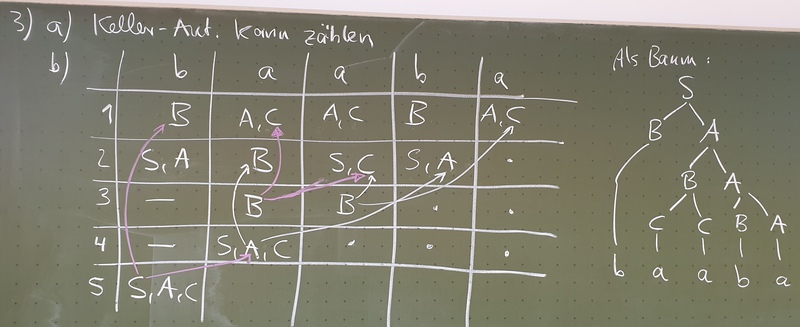 3) a) Keller-Aut. kann zählen
b) b a a b a
1 B A,C A,C B A,C
2 S,A B S,C S,A .
3 — B B . .
4 — S,A,C . . .
5 S,A,C
Als Baum:
S
B A
B A
C C B A
b a a b a